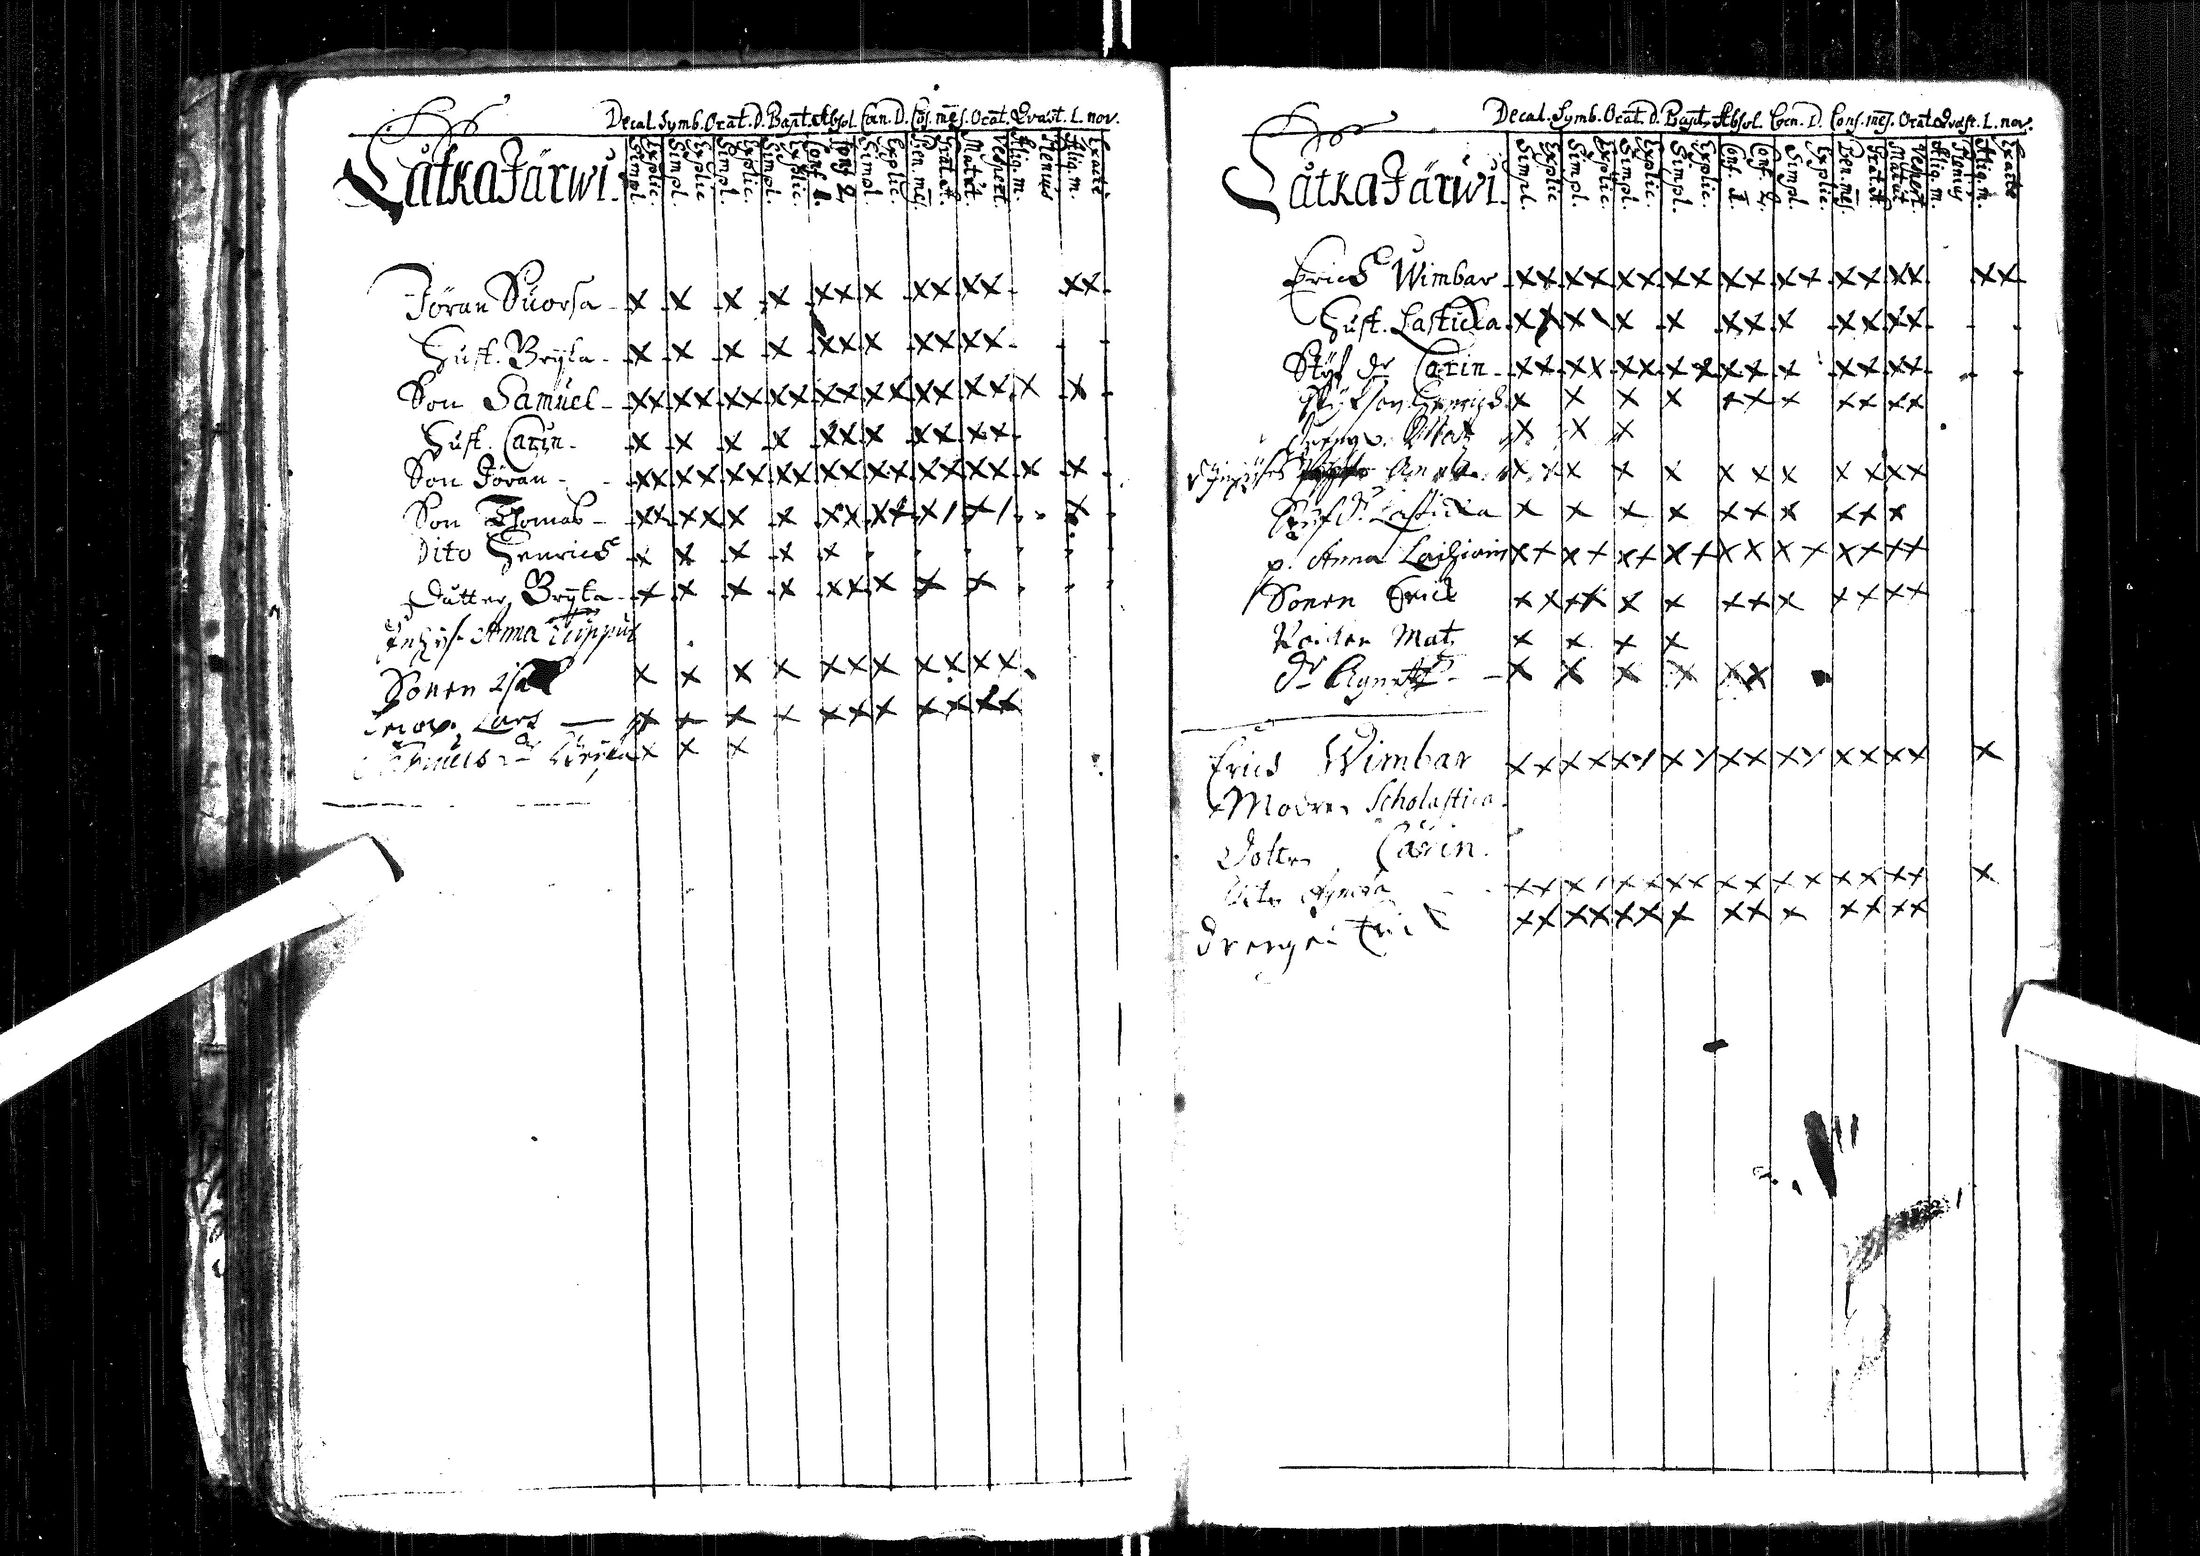 Decal. Symb. Orat. D. Bapt. Absol. Cœn. D. Cōs. mēs. Orat. Quæst. L. nov.
LåtkaJärwi.
Simpl. Explic. Simpl. Explic. Simpl. Explic. Simpl. Explic. Conf. 1. Conf. 2. Simpl. Explic. Ben. mēs. Grat. a. Matut. Vespert. Aliq. m. Plenius Aliq. m. Exacte
Jöran Suorsa - x x x x xxx x xx xx xx
Hust. Brÿta - x x x x xxx xx xx
Son Samuel - xx xx xx xx xx xx xx xx x x
Hust. Carin - x x x x xxx xx xx
Son Jöran - xx xx xx xx xx xx xx xx x x
Son Thomas - xx xx x x xx xx x/ x/ x
Dito Henrich x x x x x
Dutter Brÿta - x x x x xx x x x
Inhys. Anna
Sonen x x x x xx x xx xx
Lars x x x x xx x xx xx
x x x
Decal. Symb. Orat. D. Bapt. Absol. Cœn. D. Cons. mēs. Orat. Quæst. L. nov.
LåtkaJärwi.
Simpl. Explic Simpl. Explic. Simpl. Explic. Simpl. Explic. Conf. 1. Conf. 2. Simpl. Explic. Ben. mēs. Grat. a. Matut Vespert. Aliq. m. Plenius Aliq. m. Exacte
Erich Wimbar xx xx xx xx xx xx xx xx xx
Hust. Lasticka xx x x x xx x xx xx
Styf dr Carin - xx xx xx xx xx x xx xx
Styfson Henrich x x x x xx x xx xx
Mat x x x
x x x x x x x x x xx
Lasticka x x x x xx x xx x
p. Anna xx xx xx xx xx xx xx xx
Sonen Erich xx xx x x xx x xx xx
Mat x x x x
dr Agneta - x x x x xx
Erich Wimbar xx xx xx xx xx xx xx xx x
Modren Scholastica.
Dotter Carin.
Dito Agneta xx x/ xx xx xx xx xx xx x
Drengen Erich xx xx xx x xx x xx xx